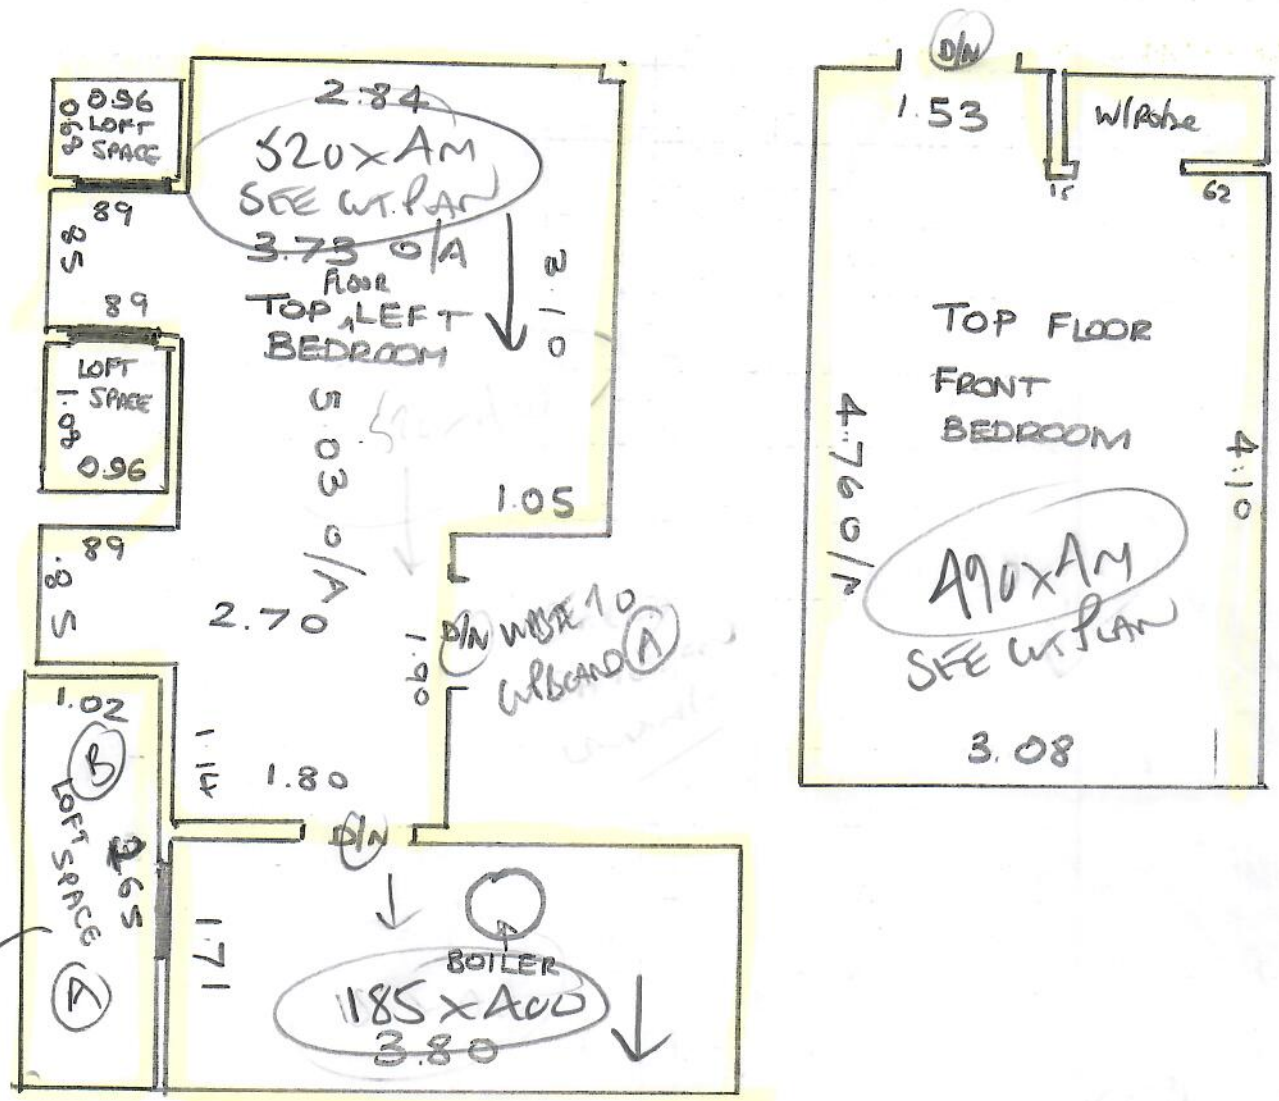 0.96
0.68
LOFT
SPACE
89
.85
89
LOFT
SPACE
1.08
0.96
89
.85
2.84
520 x AM
SEE CUT. PLAN
3.73 O/A
TOP FLOOR LEFT
BEDROOM
3.10
5.03 O/A
1.05
2.70
1.90
D/N
WASTE TO
CUPBOARD A
1.02
B
LOFT SPACE
2.65
A
1.14
1.80
D/N
1.71
BOILER
185 x 400
3.80
D/N
1.53
W/Robe
15
62
TOP FLOOR
FRONT
BEDROOM
4.76 O/A
4.10
490 x AM
SEE CUT PLAN
3.08